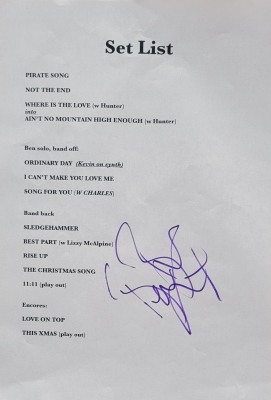 Set List
PIRATE SONG
NOT THE END
WHERE IS THE LOVE (w Hunter)
into
AIN'T NO MOUNTAIN HIGH ENOUGH (w Hunter)
Ben solo, band off:
ORDINARY DAY (Kevin on synth)
I CAN'T MAKE YOU LOVE ME
SONG FOR YOU (W CHARLES)
Band back
SLEDGEHAMMER
BEST PART (w Lizzy McAlpine)
RISE UP
THE CHRISTMAS SONG
11:11 (play out)
Encores:
LOVE ON TOP
THIS XMAS (play out)